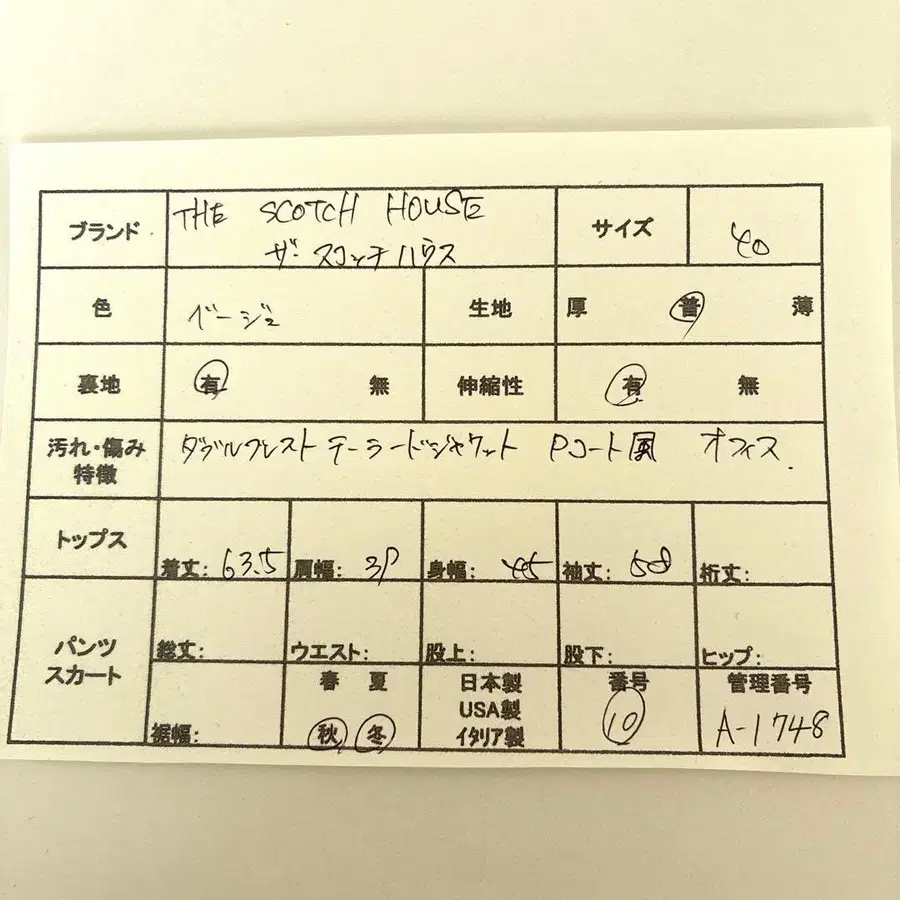 ブランド THE SCOTCH HOUSE サイズ 40
ザ・スコッチハウス
色 ベージュ 生地 厚 普 薄
裏地 有 無 伸縮性 有 無
汚れ・傷み ダブルブレスト テーラードジャケット Pコート風 オフィス.
特徴
トップス
着丈: 63.5 肩幅: 39 身幅: 45 袖丈: 58 裄丈:
パンツ
スカート
総丈: ウエスト: 股上: 股下: ヒップ:
春 夏 日本製 番号 管理番号
USA製 10 A-1748
裾幅: 秋 冬 イタリア製